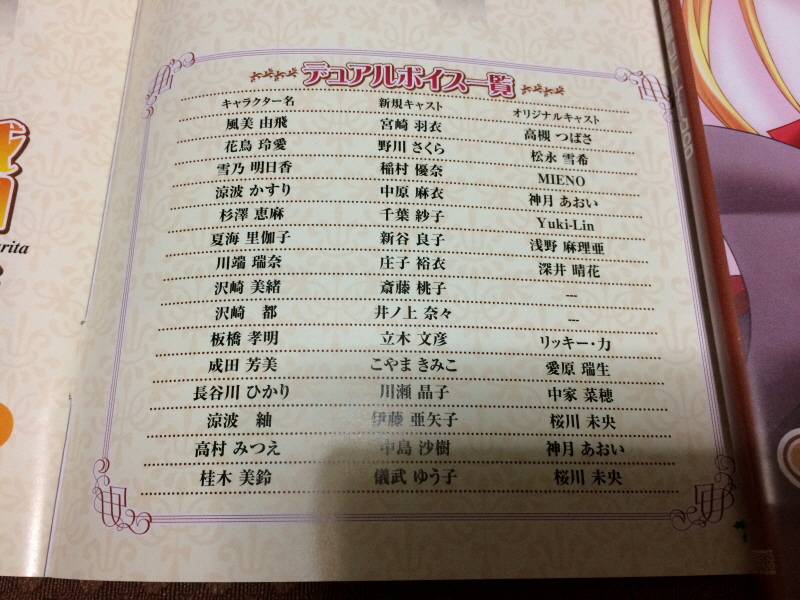 デュアルボイス一覧
キャラクター名 新規キャスト オリジナルキャスト
風美 由飛 宮崎 羽衣 高槻 つばさ
花鳥 玲愛 野川 さくら 松永 雪希
雪乃 明日香 稲村 優奈 MIENO
涼波 かすり 中原 麻衣 神月 あおい
杉澤 恵麻 千葉 紗子 Yuki-Lin
夏海 里伽子 新谷 良子 浅野 麻理亜
川端 瑞奈 庄子 裕衣 深井 晴花
沢崎 美緒 斎藤 桃子 ---
沢崎 都 井ノ上 奈々 ---
板橋 孝明 立木 文彦 リッキー・力
成田 芳美 こやま きみこ 愛原 瑞生
長谷川 ひかり 川瀬 晶子 中家 菜穂
涼波 紬 伊藤 亜矢子 桜川 未央
高村 みつえ 中島 沙樹 神月 あおい
桂木 美鈴 儀武 ゆう子 桜川 未央